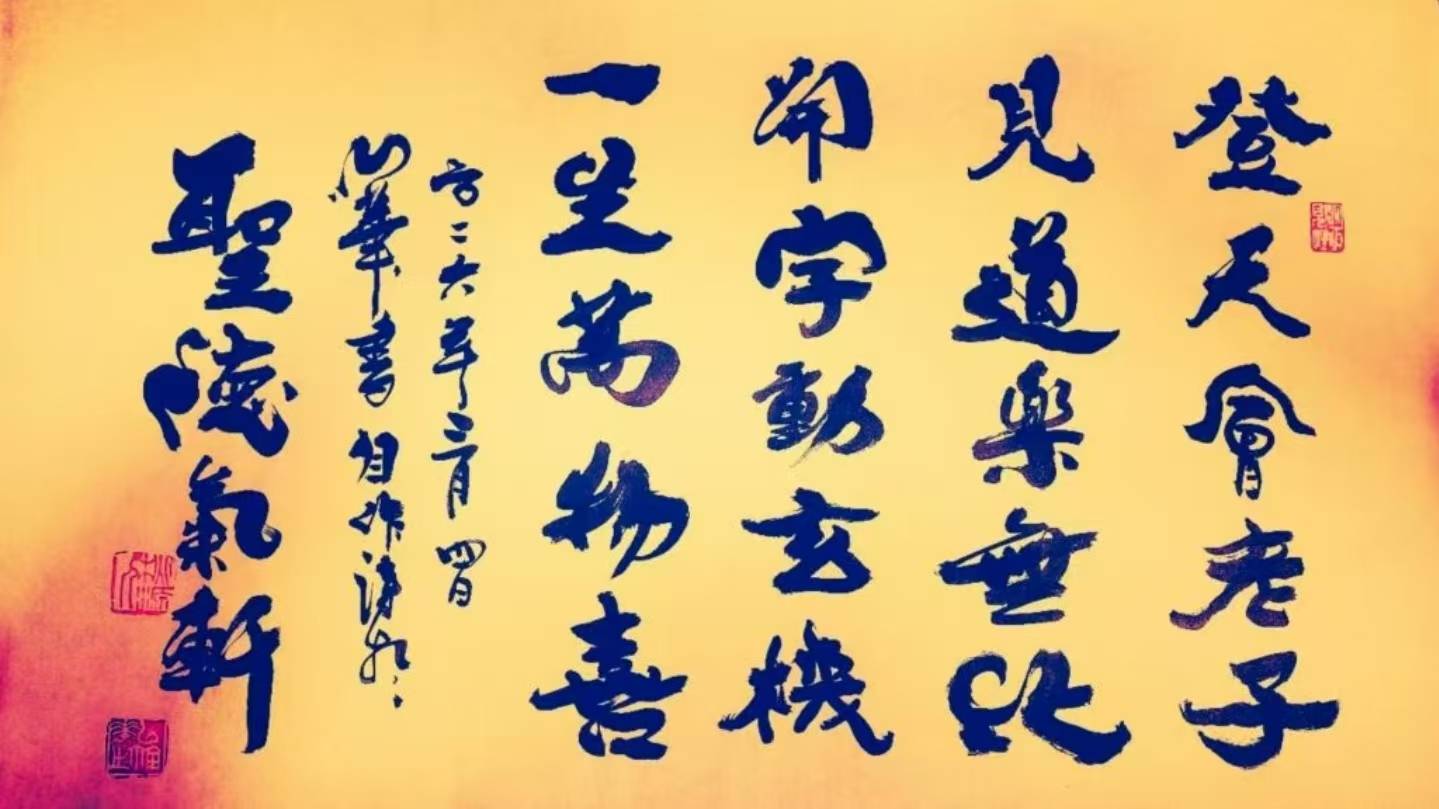 登天會老子
見道楽無比
開字動玄機
一坐萬物喜
二〇二六年三月四日
華書自作詩於
聖德氣軒